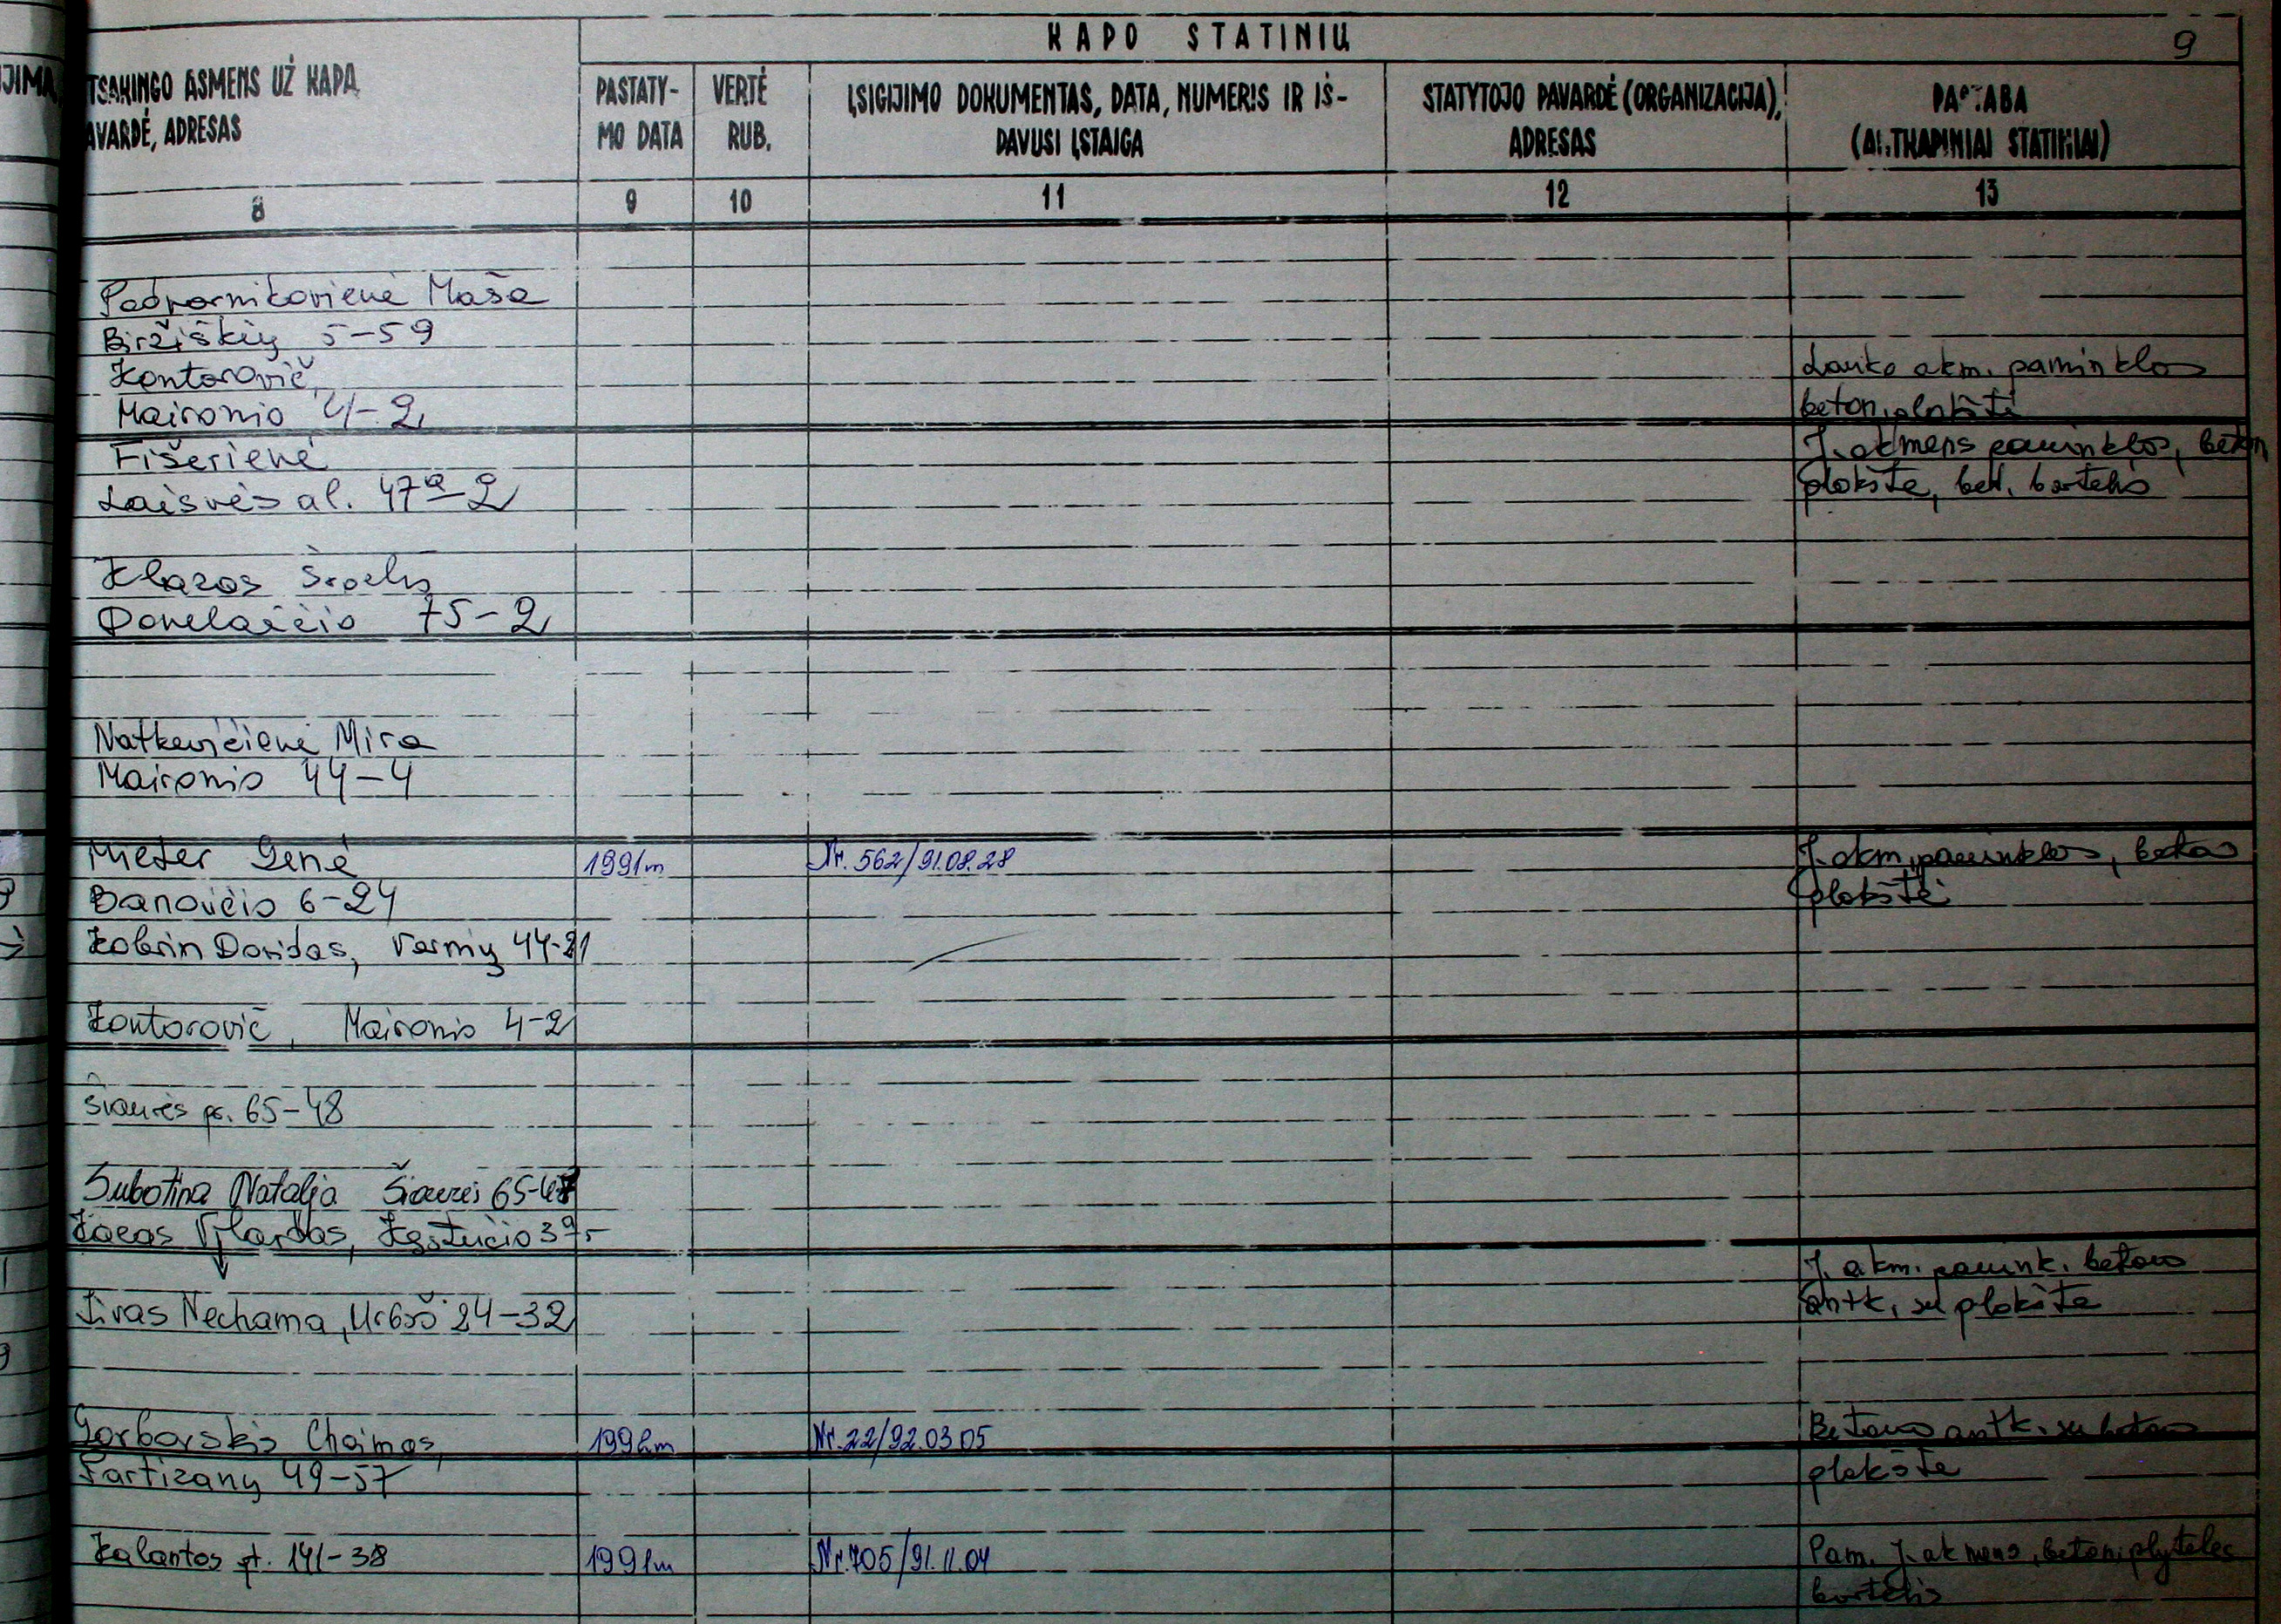 KAPO STATINIŲ
9
JIMA
TSAKINGO ASMENS UŽ KAPĄ
AVARDĖ, ADRESAS
PASTATY-
MO DATA
VERTĖ
RUB.
ĮSIGIJIMO DOKUMENTAS, DATA, NUMERIS IR IŠ-
DAVUSI ĮSTAIGA
STATYTOJO PAVARDĖ (ORGANIZACIJA),
ADRESAS
PASTABA
(ANTKAPINIAI STATINIAI)
8 9 10 11 12 13
Podpornikovienė Maša
Biržiškių 5-59
Kontorovič
Lauko akm. paminklas
Maironio 4-2
beton. plokštė
Fišerienė
J. akmens paminklas, beton
Laisvės al. 47a-2
plokštė, bet. bortelis
Klazas
Donelaičio 75-2
Natkevičienė Mira
Maironio 44-4
Mieter Genė 1991m Nr. 562/91.08.28 J. akm. paminklas, betono
Banavičio 6-24
plokštė
Kobrin Dovidas, Varnių 44-21
Kontorovič, Maironio 4-2
Šiaurės pr. 65-48
Subotina Natalja Šiaurės 65-48
Vjlardas, Kęstučio 37-
J. akm. pamink. betono
Nechama, Urbšo 24-32
antk. su plokšte
Gorbarskis Chaimas, 1992m Nr. 22/92.03.05 Betono antk. su betono
Partizanų 49-57
plokšte
Kalantos g. 141-38 1991m Nr. 705/91.11.04 Pam. J. akmens, beton. plytelės
bortelis